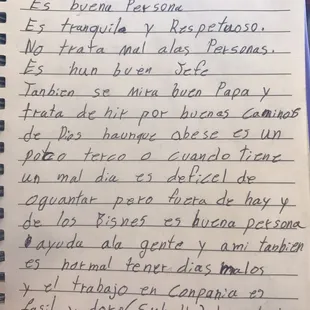 Es buena Persona
Es tranquila y Respetuoso.
No trata mal alas Personas.
Es hun buen Jefe
Tanbien se mira buen Papa y
trata de hir por buenos caminos
de Dios haunque abese es un
poco terco o cuando tiene
un mal dia es deficel de
aguantar pero fuera de hay y
de los Bisnes es buena persona
ayuda ala gente y ami tanbien
es normal tener dias malos
y el trabajo en conpania es